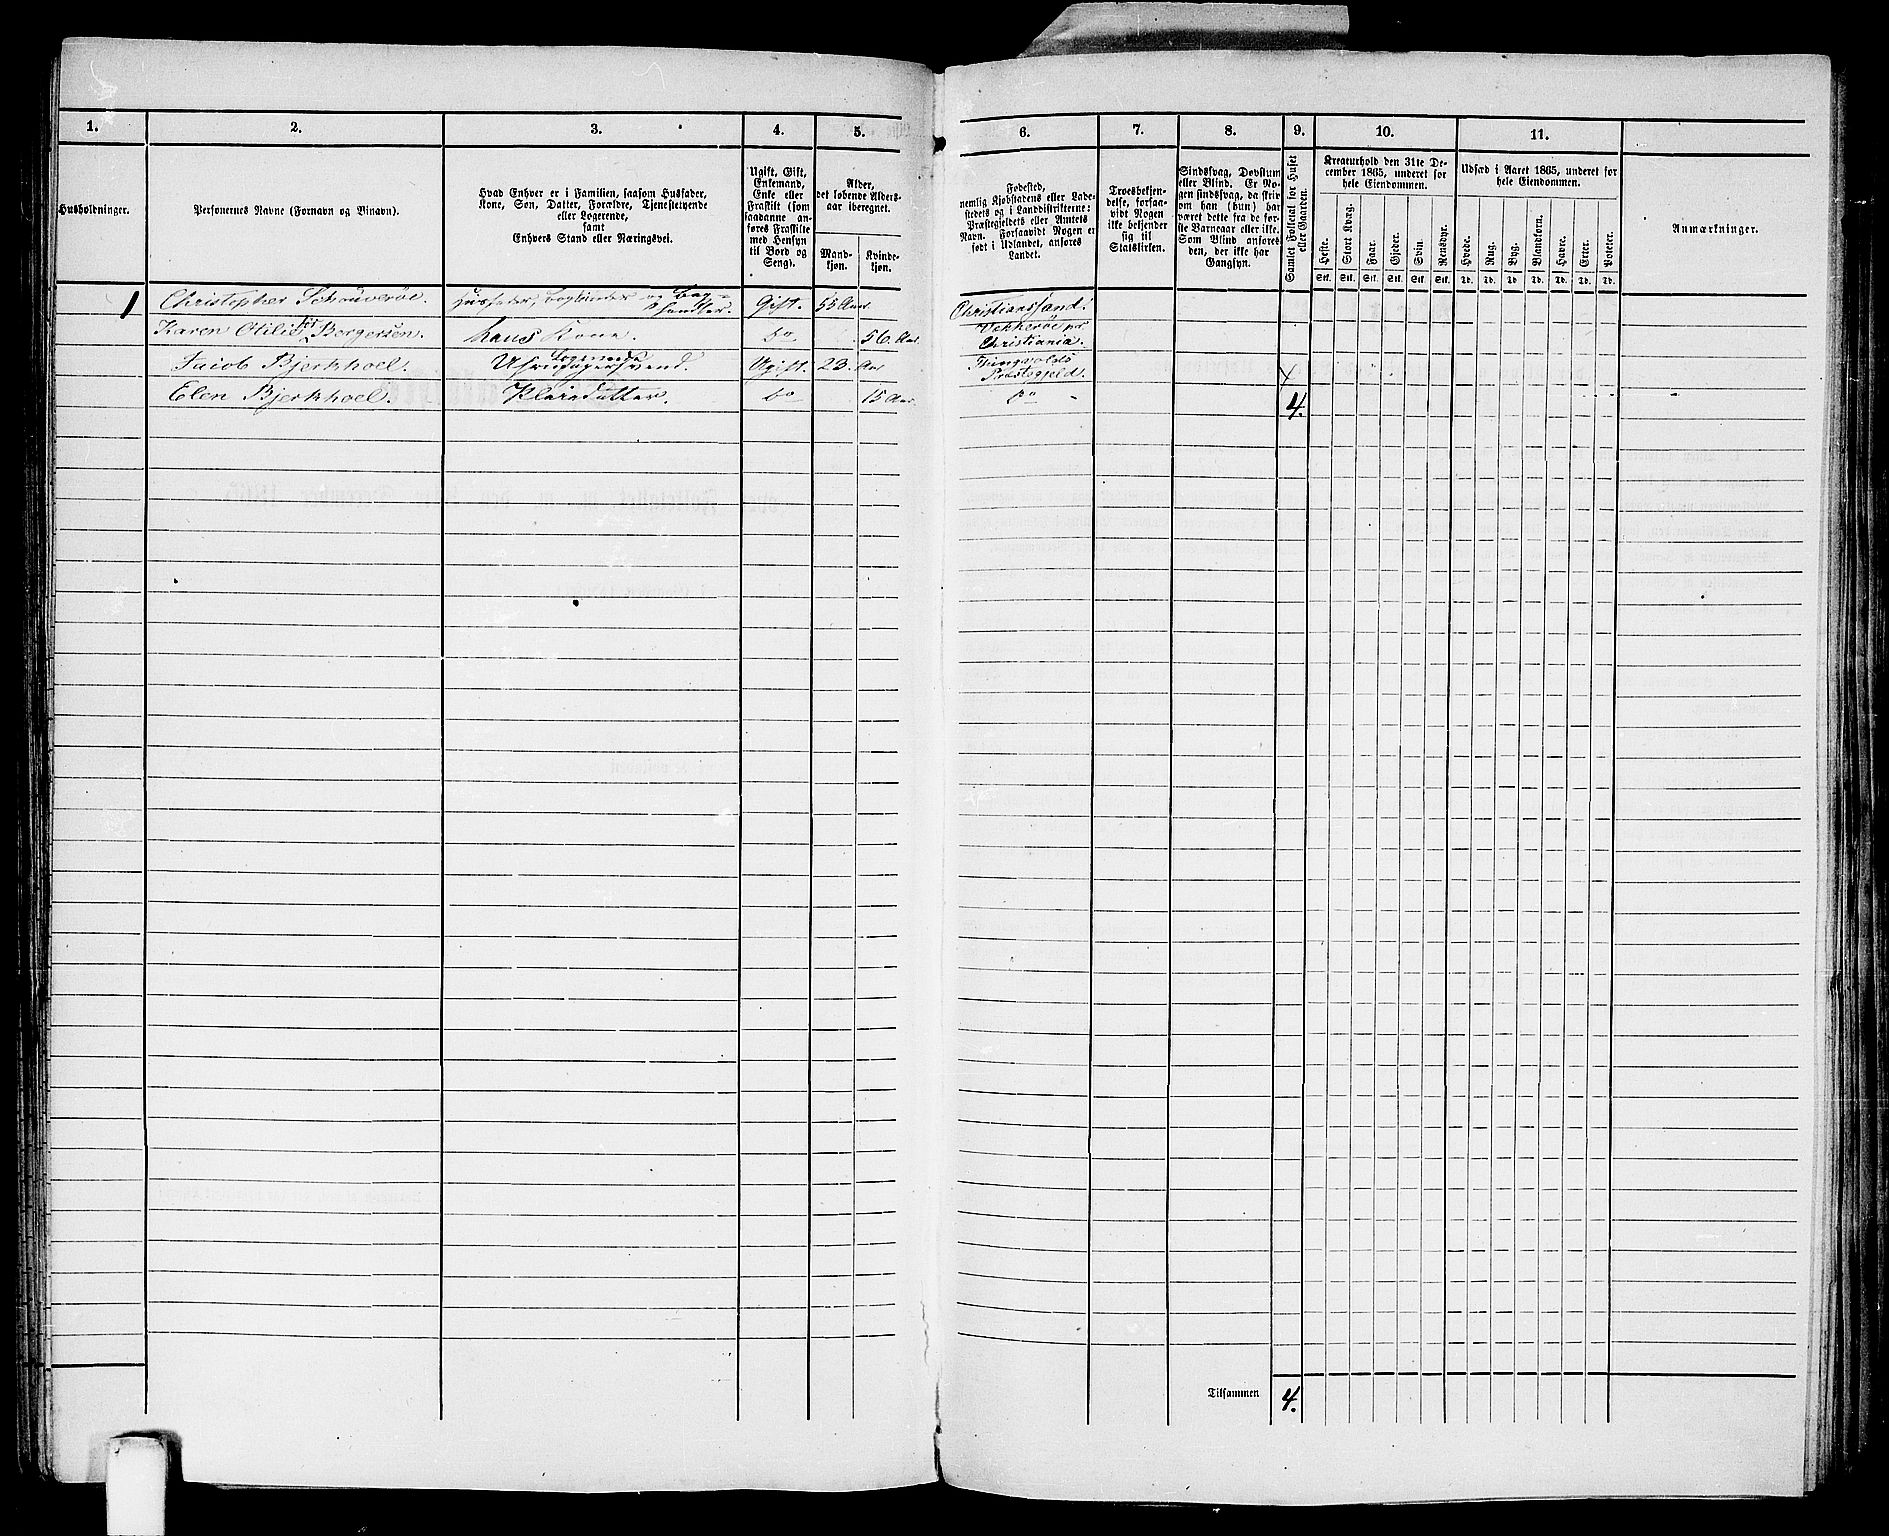 1.
2.
3.
4.
5.
6.
7.
8.
9.
10.
11.
Husholdninger.
Personernes Navne (Fornavn og Vinavn).
Hvad Enhver er i Familien, saasom Husfader,
Kone, Søn, Datter, Forældre, Tjenestetyende
eller Logerende,
samt
Enhvers Stand eller Næringsvei.
Ugift, Gift,
Enkemand,
Enke eller
Fraskilt (som
saadanne an-
føres Fraskilte
med Hensyn
til Bord og
Seng).
Alder,
det løbende Alders-
aar iberegnet.
Mand-
kjøn.
Kvinde-
kjøn.
Fødested,
nemlig Kjøbstadens eller Lade-
stedets og i Landdistrikterne:
Præstegjeldets eller Amtets
Navn. Forsaavidt Nogen er
født i Udlandet, anføres
Landet.
Troesbekjen-
delse, forsaa-
vidt Nogen
ikke bekjender
sig til
Statskirken.
Sindssvag, Døvstum
eller Blind. Er No-
gen sindssvag, da skri-
om han (hun) har
været dette fra de før-
ste Barneaar eller ikke.
Som Blind anføres
den, der ikke har
Gangsyn.
Samlet Folketal for Huset
eller Gaarden.
Kreaturhold den 31te De-
cember 1865, underet for
hele Eiendommen.
Heste.
Stort Kvæg.
Faar.
Gjeder.
Svin.
Rensdyr.
Stk. Stk. Stk. Stk. Stk. Stk.
Udsæd i Aaret 1865, underet for
hele Eiendommen.
Hvede.
Rug.
Byg.
Blandkorn.
Havre.
Erter.
Poteter.
Td. Td. Td. Td. Td. Td. Td.
Anmærkninger.
1 Christopher Schouverøe. Husfader, bogbinder og Bog-
handler. Gift. 55 Aar Christianssand.
Karen Otilie Borgersen. hans Kone. do 56. Aar Vækkerøe pr
Christiania.
Jacob Bjerkhoel. Logerende
Ugift. 23. Aar Tingvolds
Præstegjeld.
Elen Bjerkhoel. do 15 Aar. do 4.
Tilsammen 4.